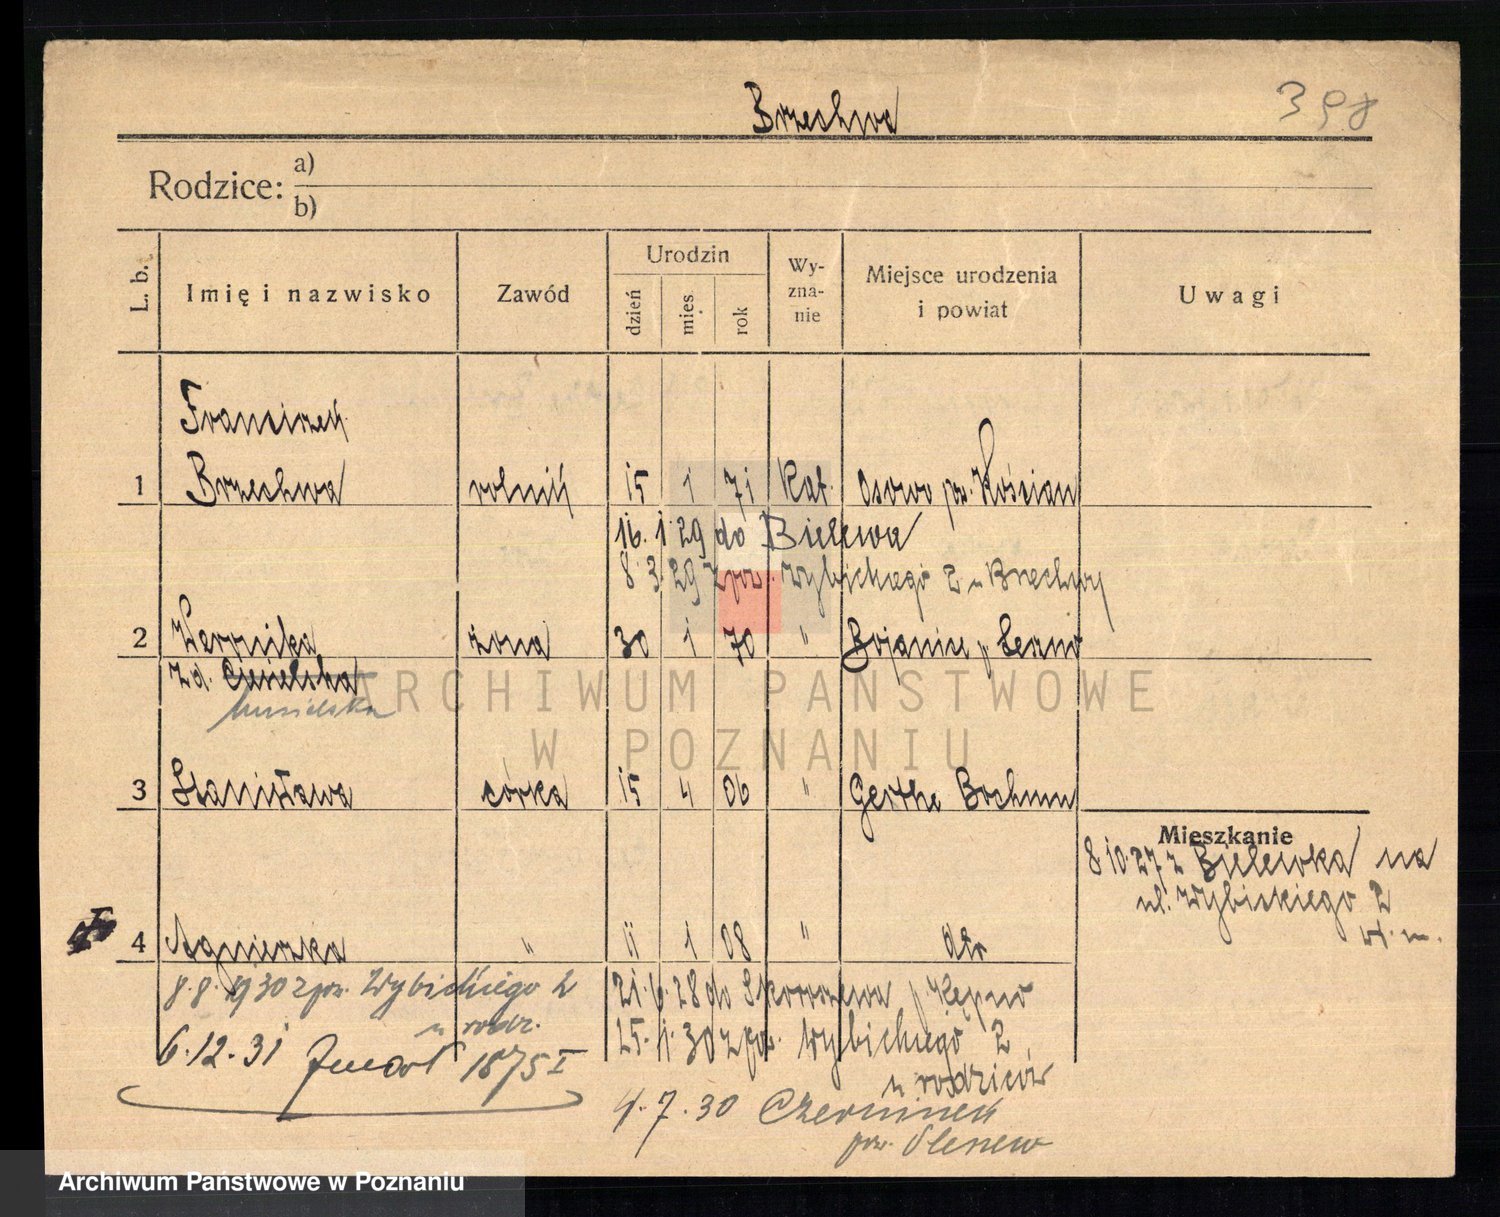 398
Brzechwa
Rodzice: a)
b)
L. b. Imię i nazwisko Zawód Urodzin dzień mies. rok Wy-zna-nie Miejsce urodzenia i powiat Uwagi
Franciszek
1 Brzechwa rolnik 15 1 71 Kat. Osowo pow. Kościan
16. 1 29 do Bielewa
8. 3. 29 z pow. Wybickiego 2 u Brzechwy
2 Weronika żona 30 1 70 " Bojanice p
z d. Cieielska
3 Stanisława córka 15 4 06 " Gerthe Bochum
Mieszkanie
8.10.27 z Bielewka na
ul. Wybickiego 2
4 Agnieszka " 11 1 08 " dto
8.8.1930 z pow. Wybickiego 2
u rodz.
21.6.28 do p Kępno
6.12.31 Zmarł 1875 I
15. 1. 30 z pow. Wybickiego 2
u rodziców
4.7.30 Czerminek
pow.
ARCHIWUM PAŃSTWOWE
W POZNANIU
Archiwum Państwowe w Poznaniu